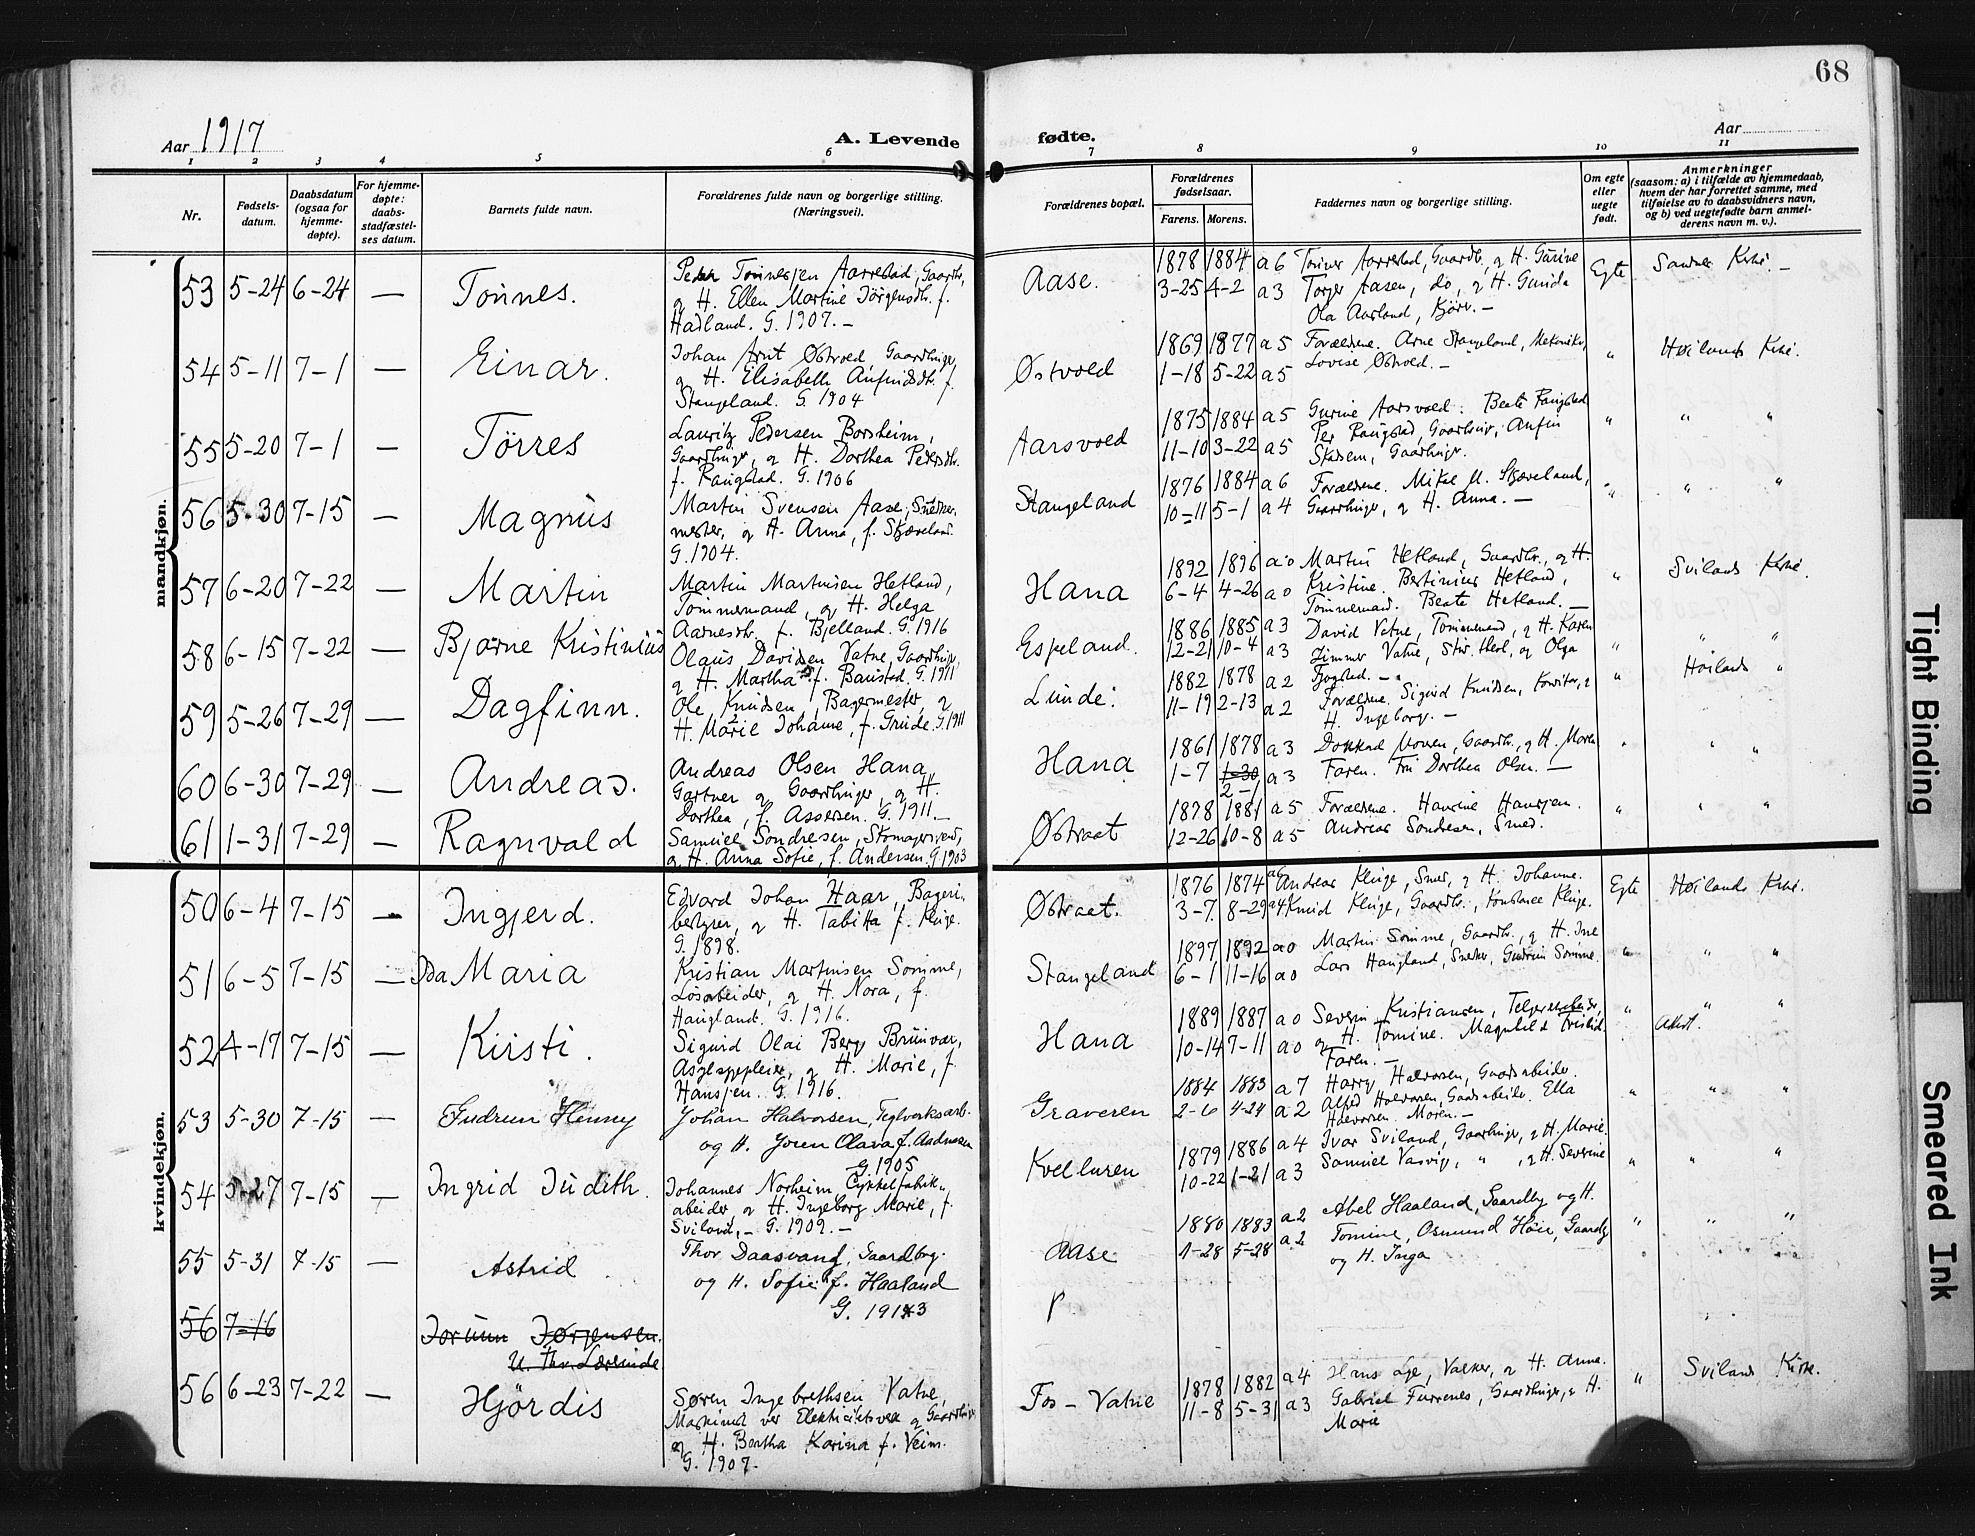 68
Aar 1917
A. Levende
fødte.
Aar
1 2 3 4 5 6 7 8 9 10 11
Nr.
Fødsels-
datum.
Daabsdatum
(ogsaa for
hjemme-
døpte).
For hjemme-
døpte:
daabs-
stadfæstel-
ses datum.
Barnets fulde navn.
Forældrenes fulde navn og borgerlige stilling.
(Næringsvei).
Forældrenes bopæl.
Forældrenes
fødselsaar.
Farens. Morens.
Faddernes navn og borgerlige stilling.
Om egte
eller
uegte
født.
Anmerkninger
(saasom: a) i tilfælde av hjemmedaab,
hvem der har forrettet samme, med
tilføielse av to daabsvidners navn,
og b) ved uegtefødte barn anmel-
derens navn m. v.).
mandkjøn.
53 5-24 6-24 — Tønnes.
Tønnesen Aarrestad, Gaardb.,
og H. Ellen Martine Jörgensdtr. f.
Hadland. G. 1907. —
Aase.
1878 1884 a 6 Tønnes Aarrestad, Gaardb., og H. Gurine
3-25 4-2 a 3 Torger Aasen, do, og H. Gunda
Ola Aarland, Kjörv. —
Egte Sandnes Kirke. —
54 5-11 7-1 — Einar.
Johan Arnt Østvold Gaardbruger,
og H. Elisabeth Anfindsdtr. f.
Stangeland. G. 1904
Østvold
1869 1877 a 5 Forældrene. Arne Stangeland, Mekaniker,
1-18 5-22 a 5 Lovise Østvold. —
" Høilands Kirke.
55 5-20 7-1 — Tørres
Lauritz Pedersen Borsheim,
Gaardbruger, og H. Dorthea Pedersdtr.
f. Raugstad. G. 1906
Aarsvold
1875 1884 a 5 Gurine Aarsvold. Beate Raugstad
11-10 3-22 a 5 Per Raugstad, Gaardbrug., Anfin
Skadsem, Gaardbruger.
" " "
56 5-30 7-15 — Magnus
Martin Svensen Aase, Snedker-
mester, og H. Anna, f. Skjæveland.
G. 1904.
Stangeland
1876 1884 a 6 Forældrene. Mikal M. Skjæveland,
10-11 5-1 a 4 Gaardbruger, og H. Anna. —
" " "
57 6-20 7-22 — Martin
Martin Martinsen Hetland,
Tømmermand, og H. Helga
Aadnesdtr. f. Bjelland. G. 1916
Hana
1892 1896 a o Martin Hetland, Gaardbr., og H.
6-4 4-26 a o Kristine. Bertinius Hetland,
Tømmermand. Beate Hetland. —
" Svilands Kirke.
58 6-15 7-22 — Bjarne Kristinius
Olaus Davidsen Vatne, Gaardbruger,
og H. Martha f. Baustad. G. 1911
Espeland.
1886 1885 a 3 David Vatne, Tømmermand, og H. Karen
12-21 10-4 a 3 Vatne, og Olga
" " "
59 5-26 7-29 — Dagfinn.
Ole Knudsen, Bagermester, og
H. Marie Johanne, f. Grude. G. 1911
Lunde.
1882 1878 a 2 Forældrene. Sigurd Knudsen, og
11-19 2-13 a 2 H. Ingeborg. —
" Høilands "
60 6-30 7-29 — Andreas.
Andreas Olsen Hana,
Gartner og Gaardbruger, og H.
Dorthea, f. Assersen. G. 1911. —
Hana
1861 1878 a 3 Gaardb., og H. Maren
1-7 1-30 a 3 Faren. Dorthea Olsen. —
2-1
" " "
61 1-31 7-29 — Ragnvald
Samuel Sondresen, Skomagersvend,
og H. Anna Sofie, f. Andersen. G. 1903
Østraat
1878 1881 a 5 Forældrene. Hanrine Hansen.
12-26 10-8 a 5 Andreas Sondresen, Smed.
" " "
kvindekjøn.
50 6-4 7-15 — Ingjerd.
Edvard Johan Haar, Bageri-
bestyrer, og H. Tabitha f. Kluge.
G. 1898.
Østraat.
1876 1874 a4 Andreas Kluge, Smed, og H. Johanne.
3-7 8-29 a4 Knud Kluge, Gaardb., Konstance Kluge.
Egte Høilands Kirke.
51 6-5 7-15 — Ida Maria
Kristian Martinsen Somme,
Løsarbeider, og H. Nora, f.
Haugland. G. 1916.
Stangeland
1897 1892 a o Martin Somme, Gaardb., og H. Ine
6-1 11-16 a o Lars Haugland, Snedker, Gudrun Somme.
" " "
52 4-17 7-15 — Kirsti.
Sigurd Olai Berg Brünvar,
Asylspleier, og H. Marie, f.
Hansen. G. 1916.
Hana
1889 1887 a o Severin Kristiansen,
10-14 7-11 a o og H. Tomine. Magnhild
Faren. —
" " "
53 5-30 7-15 — Gudrun Henny
Johan Halvorsen, Teglverksarb.
og H. Joren Olava f. Aadnesen
G. 1905
Graveren
1884 1883 a 7 Harry Halvorsen, Gaardsarbeider.
2-6 4-24 a 2 Alfred Halvorsen, Gaardsarbeider. Ella
Halvorsen. Moren. —
" " "
54 5-27 7-15 — Ingrid Judith.
Johannes Norheim, Cykkelfabrik-
arbeider, og H. Ingeborg Marie, f.
Sviland. — G. 1909. —
Kvelluren
1879 1886 a 4 Ivar Sviland, Gaardbruger, og H. Marie.
10-22 1-21 a 3 Samuel Vasvig, " , og H. Severine
" " "
55 5-31 7-15 — Astrid
Thor Daasvand, Gaardbrg.
og H. Sofie f. Haaland
G. 1913
Aase
1880 1883 a 2 Abel Haaland, Gaardbr og H.
1-28 5-28 a 2 Tomine, Osmund Høie, Gaardb
og H. Inga
" " "
56 7-16 Jorunn Jørgensen.
U. Thv. Lærerinde
56 6-23 7-22 — Hjördis
Søren Ingebrethsen Vatne,
Maskinist ved Elektricitetsverk og Gaardbruger
og H. Bertha Karina f. Veim.
G. 1907.
Fos-Vatne
1878 1882 a 4 Hans Lye, Vasker, og H. Anna.
11-8 5-31 a 3 Gabriel Furrenes, Gaardbruger, og H.
Marie
" Sviland Kirke.
Tight Binding
Smeared Ink